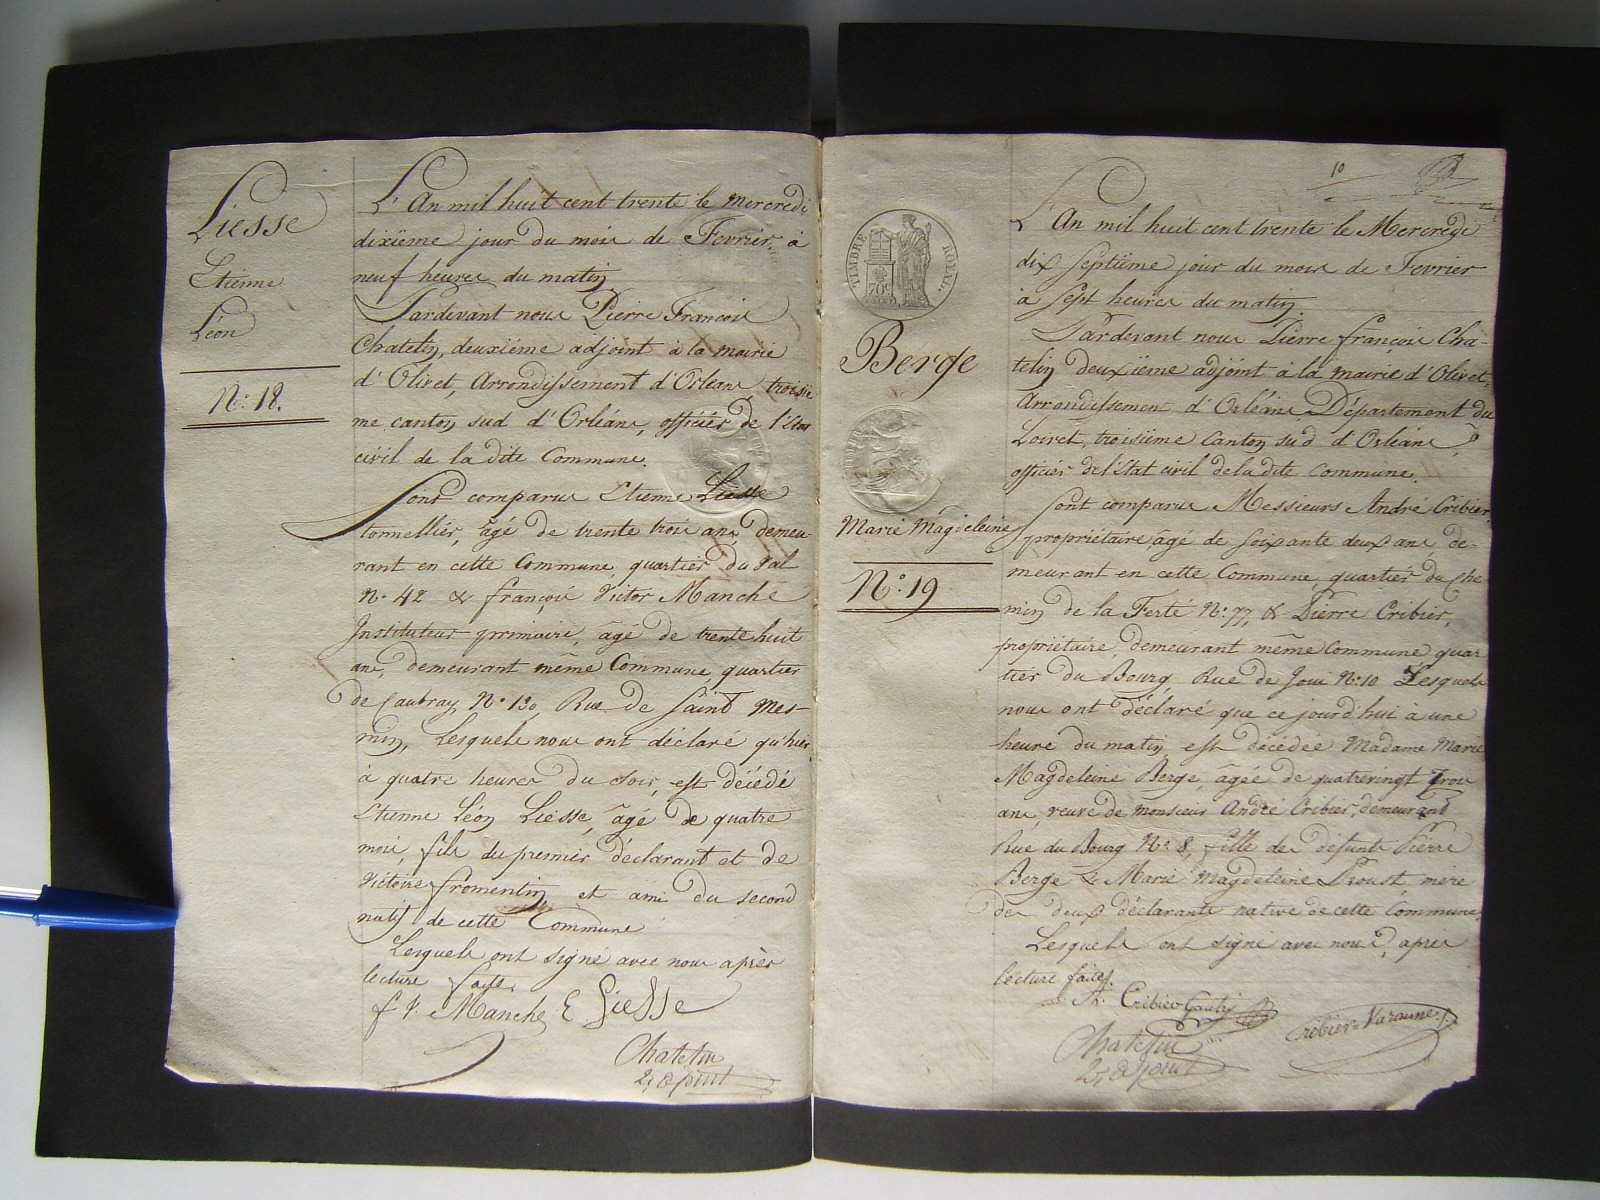 Liesse
Etienne
Léon
N.° 18.
L'An mil huit cent trente le Mercredi
dixième jour du mois de Fevrier, à
neuf heures du matin
Pardevant nous Pierre François
Chatelin, deuxième adjoint à la mairie
d'Olivet, Arrondissement d'Orléans, troisiè
me canton sud d'Orléans, officier de l'Etat
civil de la dite Commune.
Sont comparus Etienne Liesse
tonnellier, âgé de trente trois ans, demeu-
rant en cette Commune quartier du Val
N.° 42 & françois Victor Manche
Instituteur primaire, âgé de trente huit
ans, demeurant même Commune, quartier
de Caubray N.° 130, Rue de Saint Mes-
min, Lesquels nous ont déclaré qu'hier
à quatre heures du soir, est décédé
Etienne Léon Liesse, âgé de quatre
mois, fils du premier déclarant et de
Victoire fromentin, et ami du second
natif de cette Commune
Lesquels ont signé avec nous après
lecture faite,
f V. Manche E Liesse
Chatelin
2.e adjoint
10
TIMBRE ROYAL
70c
Berge
Marie Magdeleine
N.° 19
L'An mil huit cent trente le Mercredi
dix septième jour du mois de Fevrier
à sept heures du matin.
Pardevant nous Pierre françois Cha-
telin deuxième adjoint à la mairie d'Olivet,
Arrondissement d'Orléans, Département du
Loiret, troisième Canton sud d'Orléans,
officier de l'Etat civil de la dite Commune.
Sont comparus Messieurs André Cribier,
propriétaire, âgé de soixante deux ans, de-
meurant en cette Commune, quartier du Che-
min de la Ferté N.° 77, & Pierre Cribier,
propriétaire, demeurant même Commune quar
tier du Bourg, Rue de Joui N.° 10 Lesquels
nous ont déclaré que ce jourd'hui à une
heure du matin, est décédée Madame Marie
Magdeleine Berge, âgée de quatrevingt Trois
ans, veuve de monsieur André Cribier, demeurant
Rue du Bourg N.° 8, fille de défunts Pierre
Berge & Marie Magdeleine Proust, mère
des deux déclarants native de cette Commune.
Lesquels ont signé avec nous, après
lecture faite.
Cribier Cribier=Varanne
Chatelin
2.e adjoint